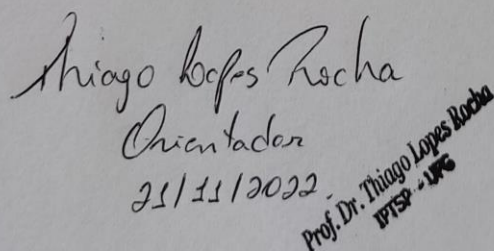 Thiago Lopes Rocha
Orientador
21/11/2022.
Prof. Dr. Thiago Lopes Rocha
IPTSP - UFG